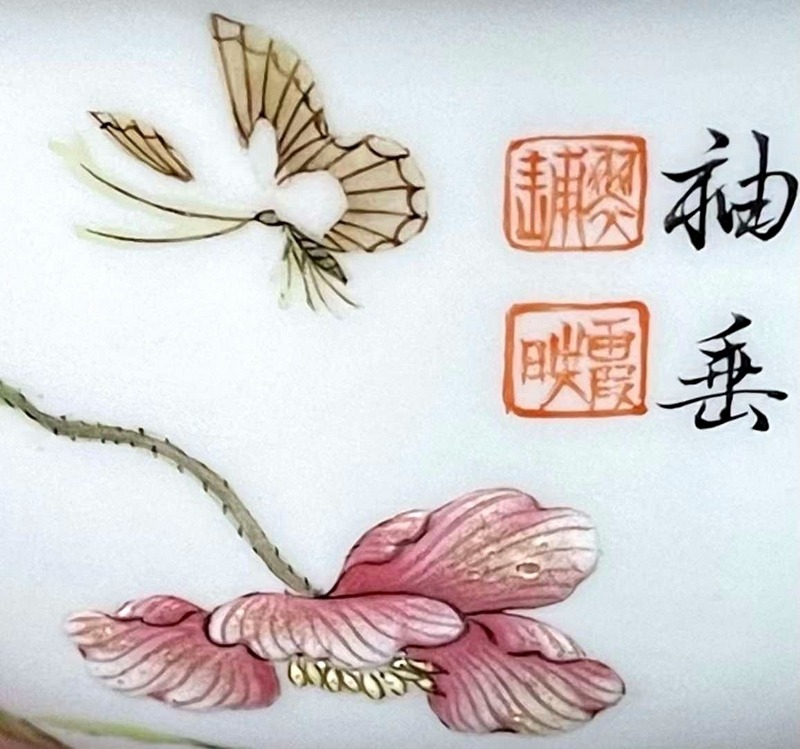 袖垂
翠鋪
霞映